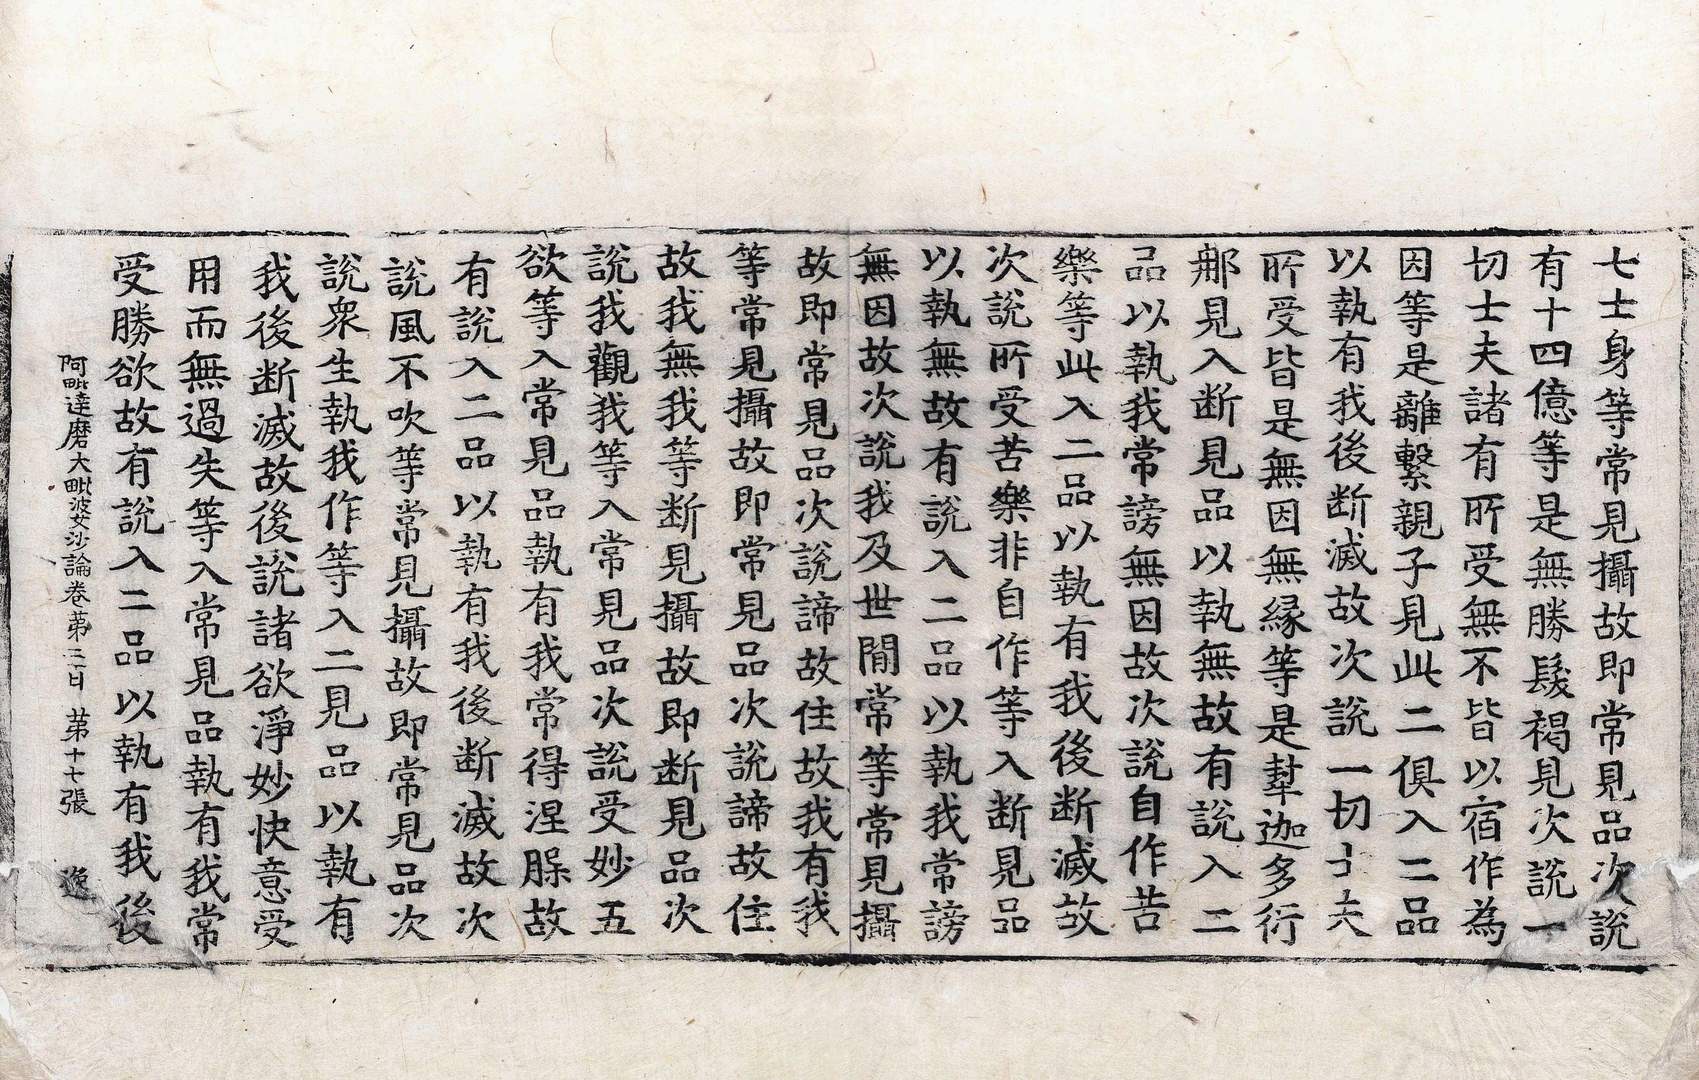 七士身等常見攝故即常見品次說
有十四億等是無勝髮褐見次說一
切士夫諸有所受無不皆以宿作為
因等是離繫親子見此二俱入二品
以執有我後断滅故次說一切士夫
所受皆是無因無縁等是犎迦多衍
那見入断見品以執無故有說入二
品以執我常謗無因故次說自作苦
樂等此入二品以執有我後断滅故
次說所受苦樂非自作等入断見品
以執無故有說入二品以執我常謗
無因故次說我及世間常等常見攝
故即常見品次說諦故住故我有我
等常見攝故即常見品次說諦故住
故我無我等断見攝故即断見品次
說我觀我等入常見品次說受妙五
欲等入常見品執有我常得涅槃故
有說入二品以執有我後断滅故次
說風不吹等常見攝故即常見品次
說衆生執我作等入二見品以執有
我後断滅故後說諸欲淨妙快意受
用而無過失等入常見品執有我常
受勝欲故有說入二品以執有我後
阿毗達磨大毗婆沙論卷苐二百 苐十七張 逸